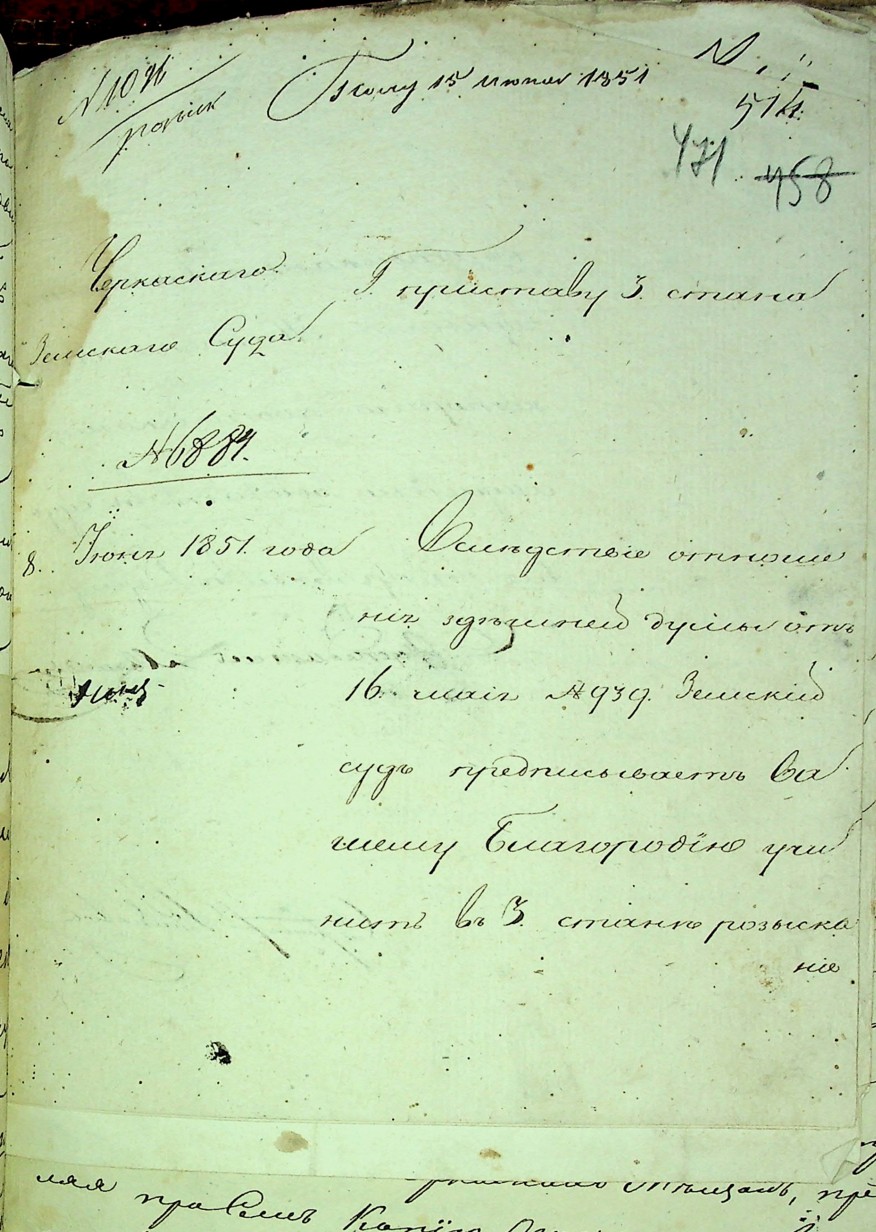 N 1096
розыск
Получ 15 июня 1851
514.
471 458
Черкаскаго
Земскаго Суда
Г. приставу 3. стана
№ 6884.
8. Іюня 1851. года
Вслѣдствіе отноше
нія здѣшней думы отъ
16. маія № 939. Земскій
судъ предписываетъ Ва
шему Благородію учи
нить въ 3. станѣ розыска
ніе
Копію